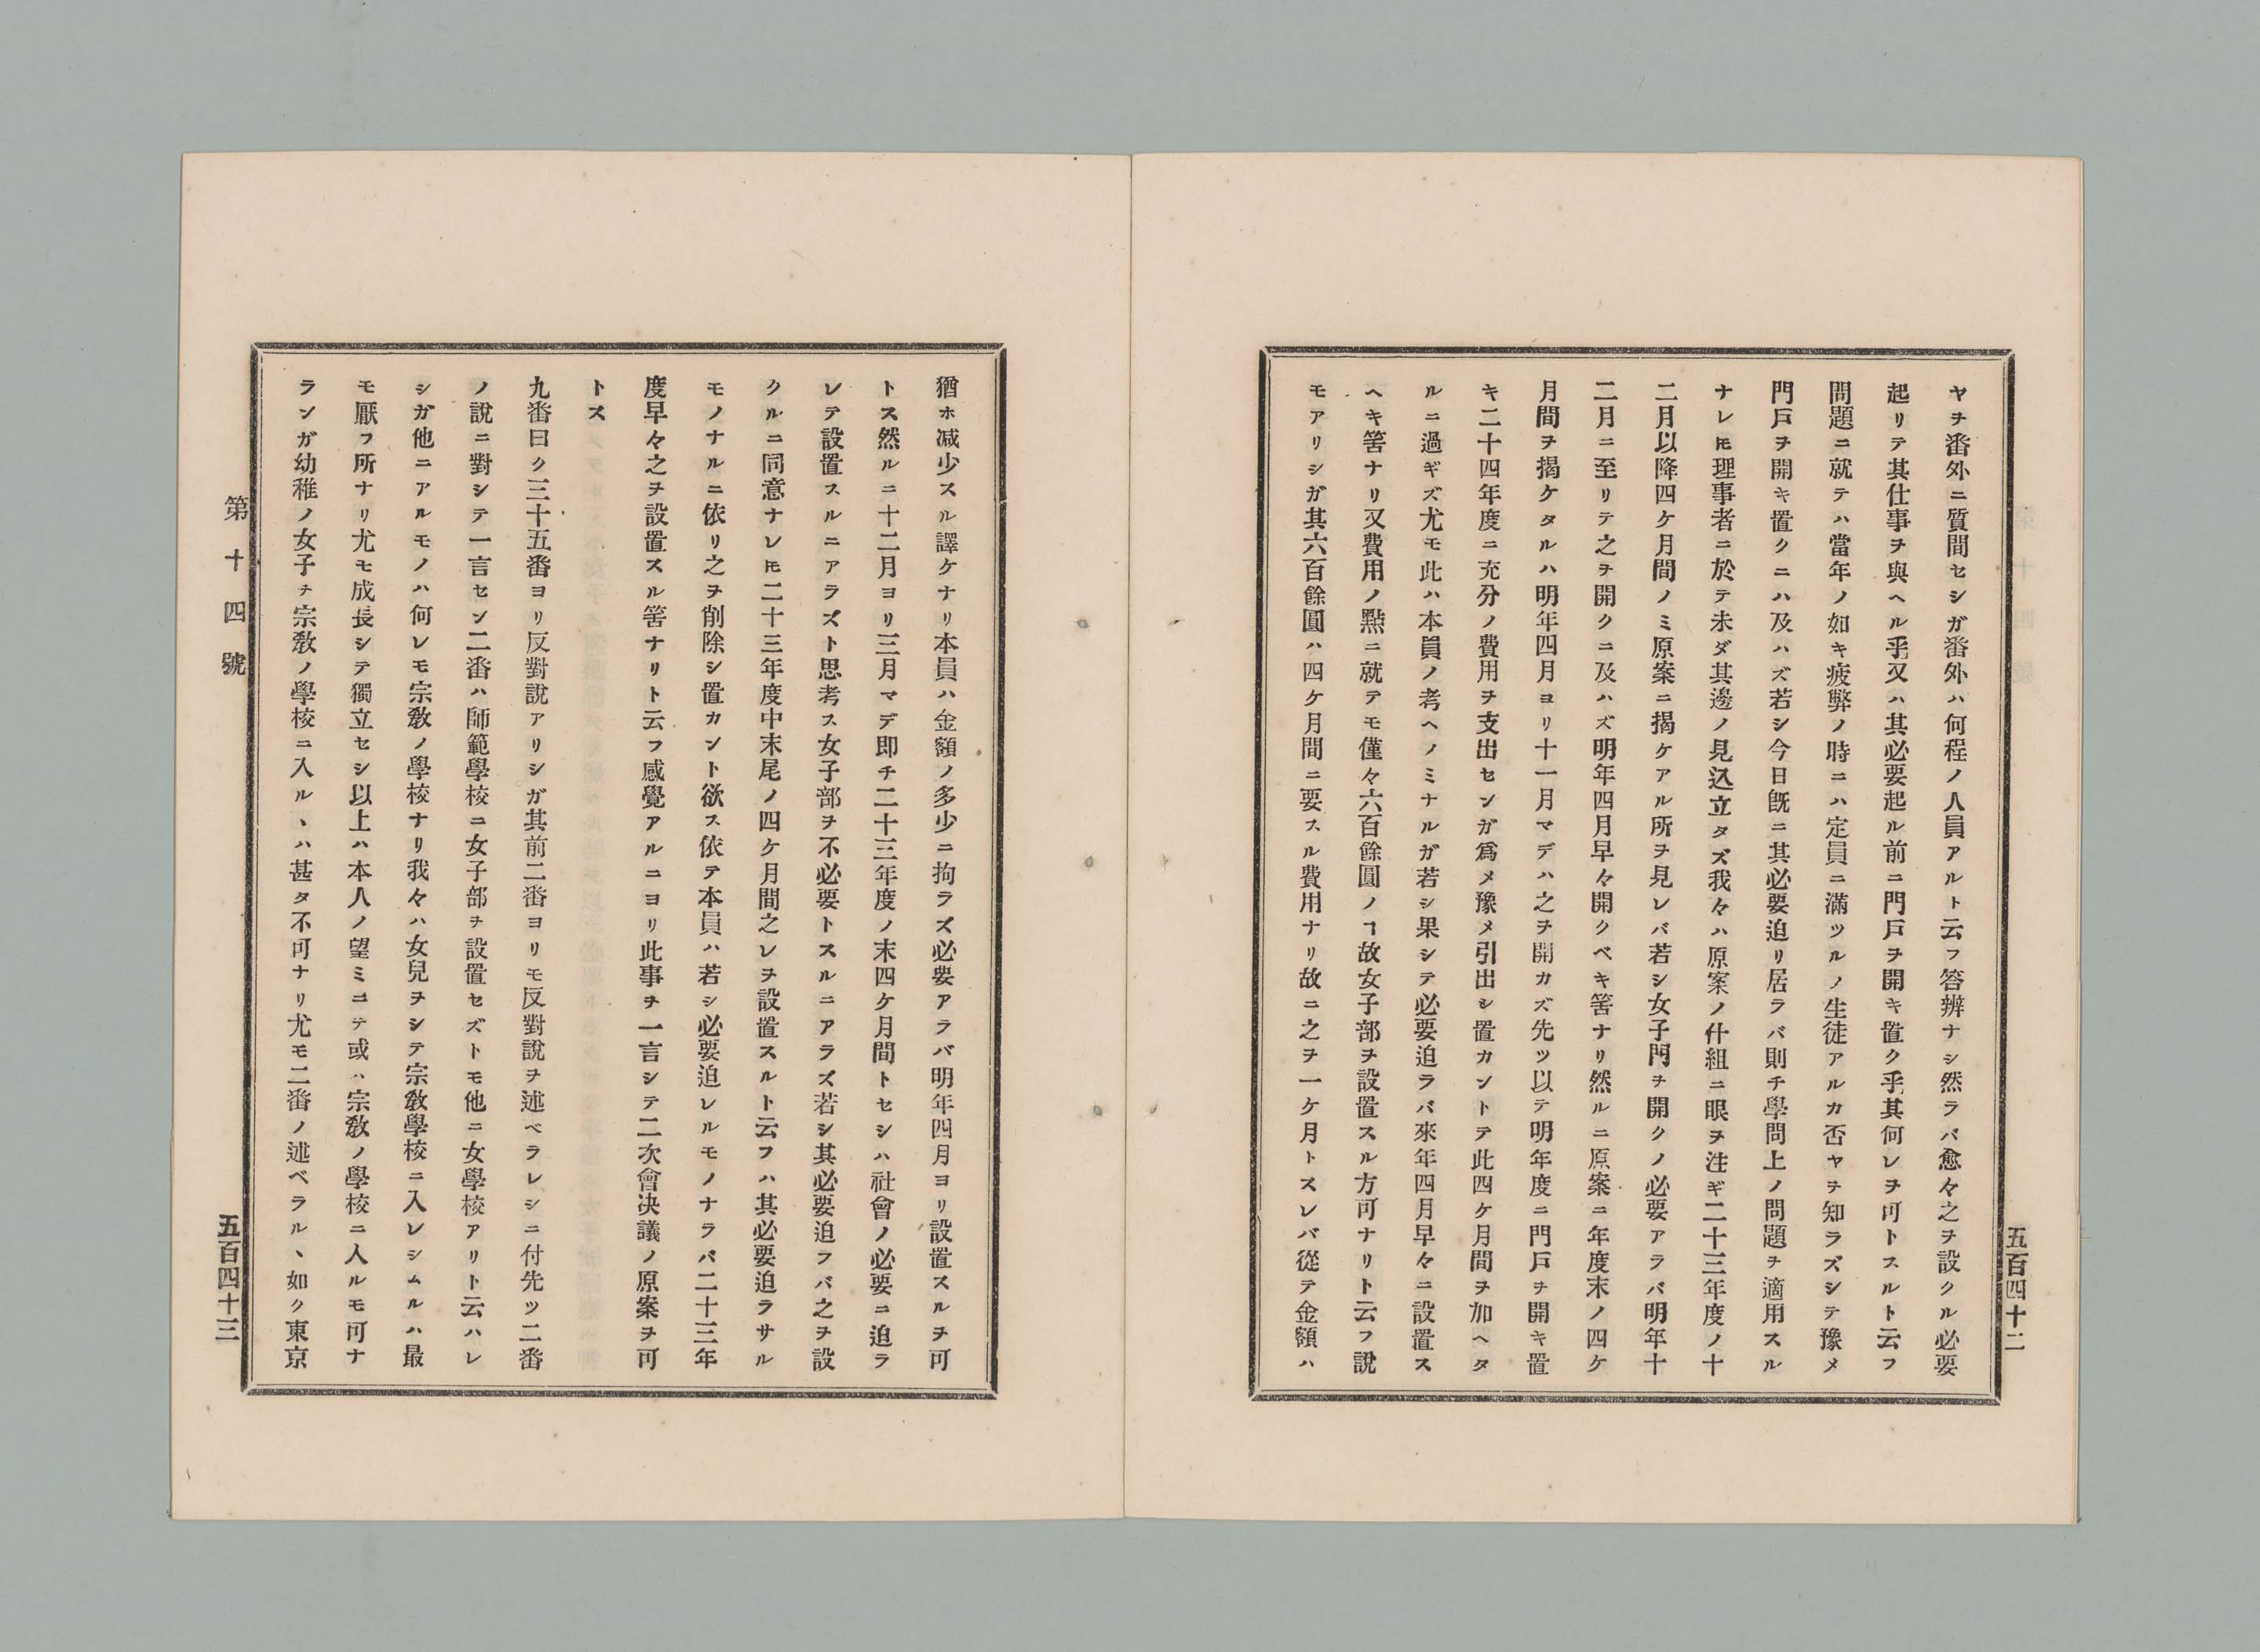 五百四十二
ヤヲ番外ニ質問セシガ番外ハ何程ノ人員アルト云フ答辨ナシ然ラバ愈々之ヲ設クル必要
起リテ其仕事ヲ與ヘル乎又ハ其必要起ル前ニ門戸ヲ開キ置ク乎其何レヲ可トスルト云フ
問題ニ就テハ當年ノ如キ疲弊ノ時ニハ定員ニ滿ツルノ生徒アルカ否ヤヲ知ラズシテ豫メ
門戸ヲ開キ置クニハ及ハズ若シ今日既ニ其必要迫リ居ラバ則チ學問上ノ問題ヲ適用スル
ナレ𪜈理事者ニ於テ未ダ其邊ノ見込立タズ我々ハ原案ノ什組ニ眼ヲ注ギ二十三年度ノ十
二月以降四ケ月間ノミ原案ニ揭ケアル所ヲ見レバ若シ女子門ヲ開クノ必要アラバ明年十
二月ニ至リテ之ヲ開クニ及ハズ明年四月早々開クベキ筈ナリ然ルニ原案ニ年度末ノ四ケ
月間ヲ揭ケタルハ明年四月ヨリ十一月マデハ之ヲ開カズ先ツ以テ明年度ニ門戸ヲ開キ置
キ二十四年度ニ充分ノ費用ヲ支出センガ爲メ豫メ引出シ置カントテ此四ケ月間ヲ加ヘタ
ルニ過ギズ尤モ此ハ本員ノ考ヘノミナルガ若シ果シテ必要迫ラバ來年四月早々ニ設置ス
ヘキ筈ナリ又費用ノ點ニ就テモ僅々六百餘圓ノヿ故女子部ヲ設置スル方可ナリト云フ說
モアリシガ其六百餘圓ハ四ケ月間ニ要スル費用ナリ故ニ之ヲ一ケ月トスレバ從テ金額ハ
猶ホ減少スル譯ケナリ本員ハ金額ノ多少ニ拘ラズ必要アラバ明年四月ヨリ設置スルヲ可
トス然ルニ十二月ヨリ三月マデ即チ二十三年度ノ末四ケ月間トセシハ社會ノ必要ニ迫ラ
レテ設置スルニアラズト思考ス女子部ヲ不必要トスルニアラズ若シ其必要迫フバ之ヲ設
クルニ同意ナレ𪜈二十三年度中末尾ノ四ケ月間之レヲ設置スルト云フハ其必要迫ラサル
モノナルニ依リ之ヲ削除シ置カント欲ス依テ本員ハ若シ必要迫レルモノナラバ二十三年
度早々之ヲ設置スル筈ナリト云フ感覺アルニヨリ此事ヲ一言シテ二次會決議ノ原案ヲ可
トス
九番曰ク三十五番ヨリ反對說アリシガ其前二番ヨリモ反對說ヲ述ベラレシニ付先ツ二番
ノ說ニ對シテ一言セン二番ハ師範學校ニ女子部ヲ設置セズトモ他ニ女學校アリト云ハレ
シガ他ニアルモノハ何レモ宗敎ノ學校ナリ我々ハ女兒ヲシテ宗敎學校ニ入レシムルハ最
モ厭フ所ナリ尤モ成長シテ獨立セシ以上ハ本人ノ望ミニテ或ハ宗敎ノ學校ニ入ルモ可ナ
ランガ幼稚ノ女子ヲ宗敎ノ學校ニ入ルヽハ甚タ不可ナリ尤モ二番ノ述ベラルヽ如ク東京
第十四號
五百四十三